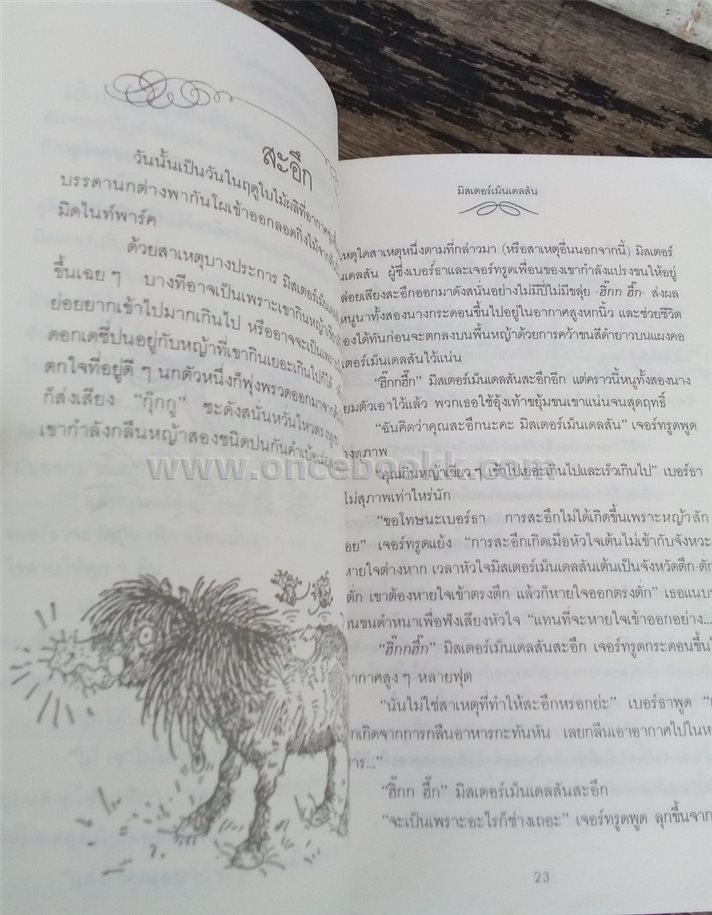 สะอึก
วันนั้นเป็นวันในฤดูใบไม้ผลิที่อากาศ
บรรดานกต่างพากันโผเข้าออกลอดกิ่งไม้จาก
มิดไนท์พาร์ค
ด้วยสาเหตุบางประการ มิสเตอร์เม็นเดลสัน
ขึ้นเฉยๆ บางทีอาจเป็นเพราะเขากินหญ้า
ย่อยยากเข้าไปมากเกินไป หรืออาจจะเป็นเพราะ
ดอกเดซี่ปนอยู่กับหญ้าที่เขากินเยอะเกินไปก็ได้
ตกใจที่อยู่ดีๆ นกตัวหนึ่งก็พุ่งพรวดออกมาจาก
ก็ส่งเสียง “กุ๊กกู” ซะดังสนั่นหวั่นไหวตรง
เขากำลังกลืนหญ้าสองชนิดปนกันคำเบ้อเร่อ
มิสเตอร์เม็นเดลสัน
เหตุใดสาเหตุหนึ่งตามที่กล่าวมา (หรือสาเหตุอื่นนอกจากนี้) มิสเตอร์
ม็นเดลสัน ผู้ซึ่งเบอร์ธาและเจอร์ทรูดเพื่อนของเขากำลังแปรงขนให้อยู่
ล่อยเสียงสะอึกออกมาดังสนั่นอย่างไม่มีปี่ไม่มีขลุ่ย -ฮึ๊กก ฮึ๊ก- ส่งผล
หนูนาทั้งสองนางกระดอนขึ้นไปอยู่ในอากาศสูงหกนิ้ว และช่วยชีวิต
องได้ทันก่อนจะตกลงบนพื้นหญ้าด้วยการคว้าขนสีดำยาวบนแผงคอ
สเตอร์เม็นเดลสันไว้แน่น
“ฮึ๊กกฮึ๊ก” มิสเตอร์เม็นเดลสันสะอึกอีก แต่คราวนี้หนูทั้งสองนาง
ยมตัวเอาไว้แล้ว พวกเธอใช้อุ้งเท้าขยุ้มขนเขาแน่นจนสุดฤทธิ์
“ฉันคิดว่าคุณสะอึกนะคะ มิสเตอร์เม็นเดลสัน” เจอร์ทรูดพูด
างสุภาพ
www.oncebookk.com
“คุณกินหญ้าเขียวๆ เข้าไปเยอะเกินไปและเร็วเกินไป” เบอร์ธา
ไม่สุภาพเท่าไหร่นัก
“ขอโทษนะเบอร์ธา การสะอึกไม่ได้เกิดขึ้นเพราะหญ้าสัก
อย” เจอร์ทรูดแย้ง “การสะอึกเกิดเมื่อหัวใจเต้นไม่เข้ากับจังหวะ
หายใจต่างหาก เวลาหัวใจมิสเตอร์เม็นเดลสันเต้นเป็นจังหวัดตึก-ตัก
ตัก เขาต้องหายใจเข้าตรงตึก แล้วก็หายใจออกตรงตัก” เธอแนบ
นขนดำหนาเพื่อฟังเสียงหัวใจ “แทนที่จะหายใจเข้าออกอย่าง...
“ฮึ๊กกฮึ๊ก” มิสเตอร์เม็นเดลสันสะอึก เจอร์ทรูดกระดอนขึ้นไ
ากาศสูงๆ หลายฟุต
“นั่นไม่ใช่สาเหตุที่ทำให้สะอึกหรอกย่ะ” เบอร์ธาพูด
กเกิดจากการกลืนอาหารกะทันหัน เลยกลืนเอาอากาศไปในห
าร...”
“ฮึกก ฮึ๊ก” มิสเตอร์เม็นเดลสันสะอึก
“จะเป็นเพราะอะไรก็ช่างเถอะ” เจอร์ทรูดพูด ลุกขึ้นจาก
23